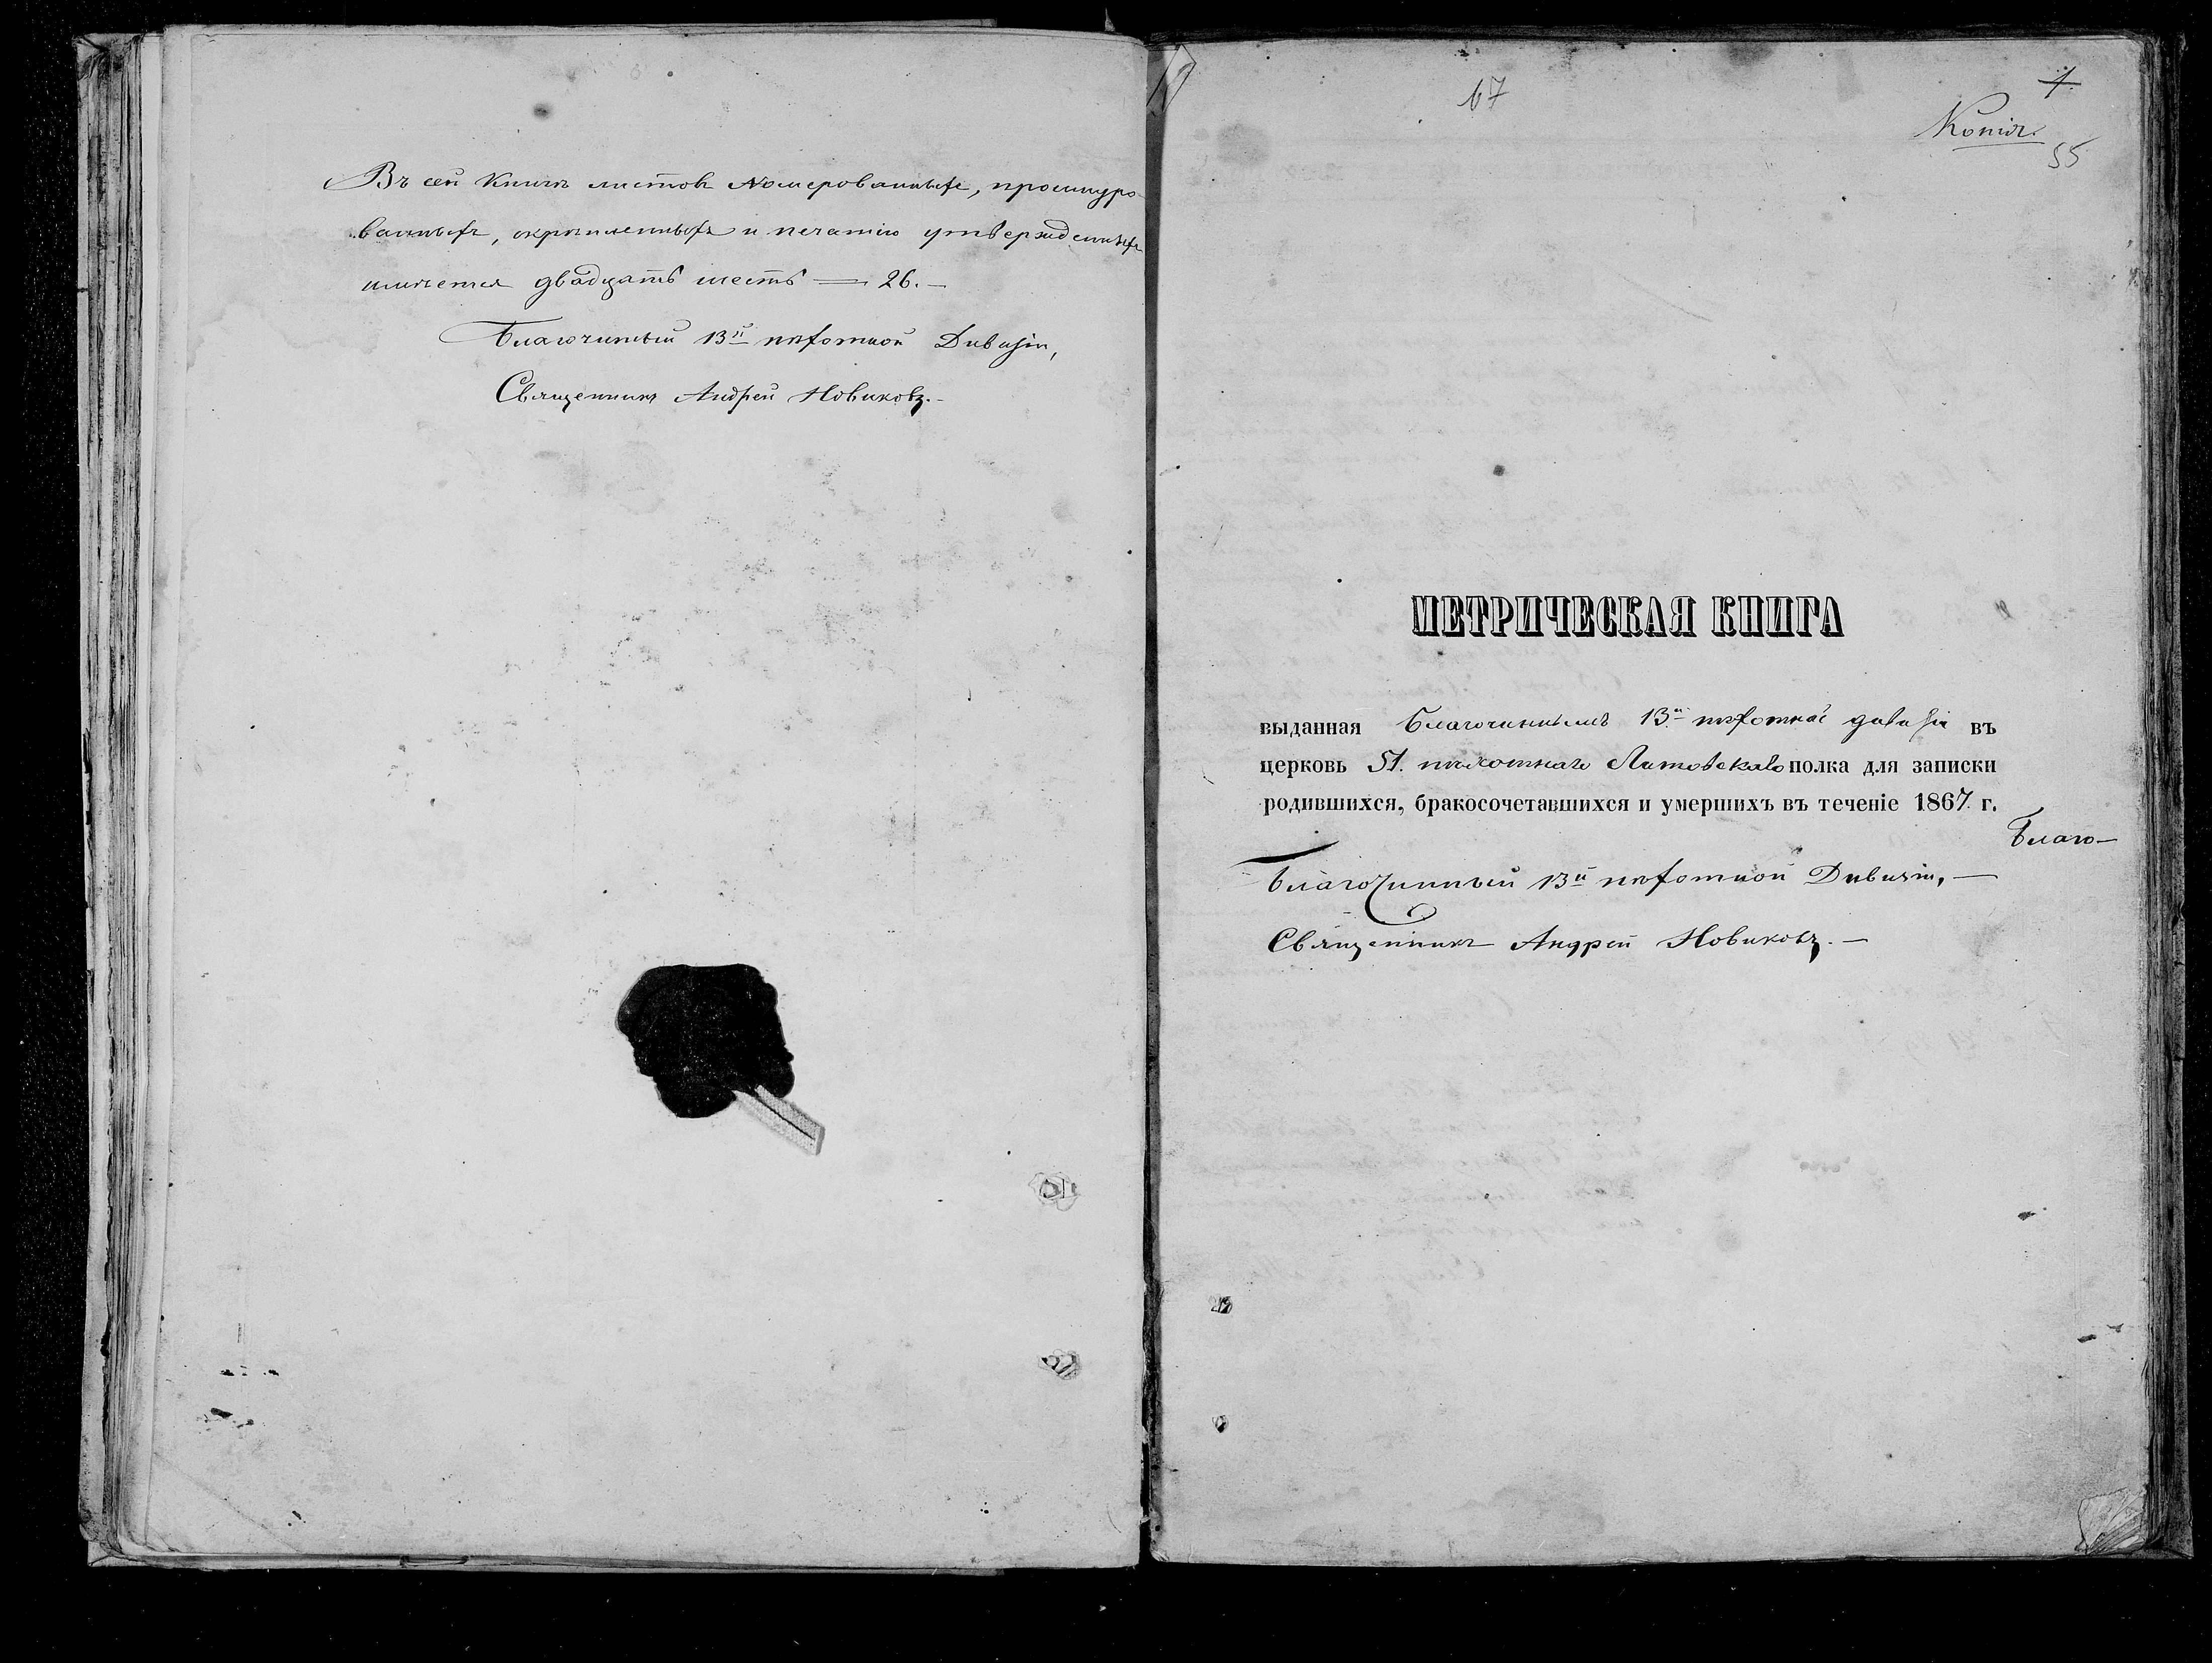 Въ сей Книгѣ листовъ номерованныхъ, прошнуро-
ванныхъ, скрѣпленныхъ и печатію утвержденныхъ
имѣется двадцать шесть — 26. —
Благочинный 13й пѣхотной Дивизіи,
Священникъ Андрей Новиковъ. —
67
1.
Копія.
55
МЕТРИЧЕСКАЯ КНИГА
выданная Благочиннымъ 13й пѣхотной дивизіи въ
церковь 51. пѣхотнаго Литовскаго полка для записки
родившихся, бракосочетавшихся и умершихъ въ теченіе 1867. г.
Благо—
Благочинный 13й пѣхотной Дивизіи, —
Священникъ Андрей Новиковъ. —